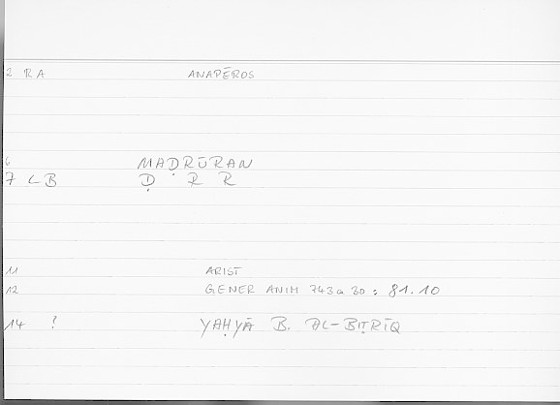 2 RA ANAPĒROS
6 MAḌRŪRAN
7 LB Ḍ R R
11 ARIST
12 GENER ANIM 743a 30 : 81.10
14 ? YAḤYĀ B. AL-BIṬRĪQ